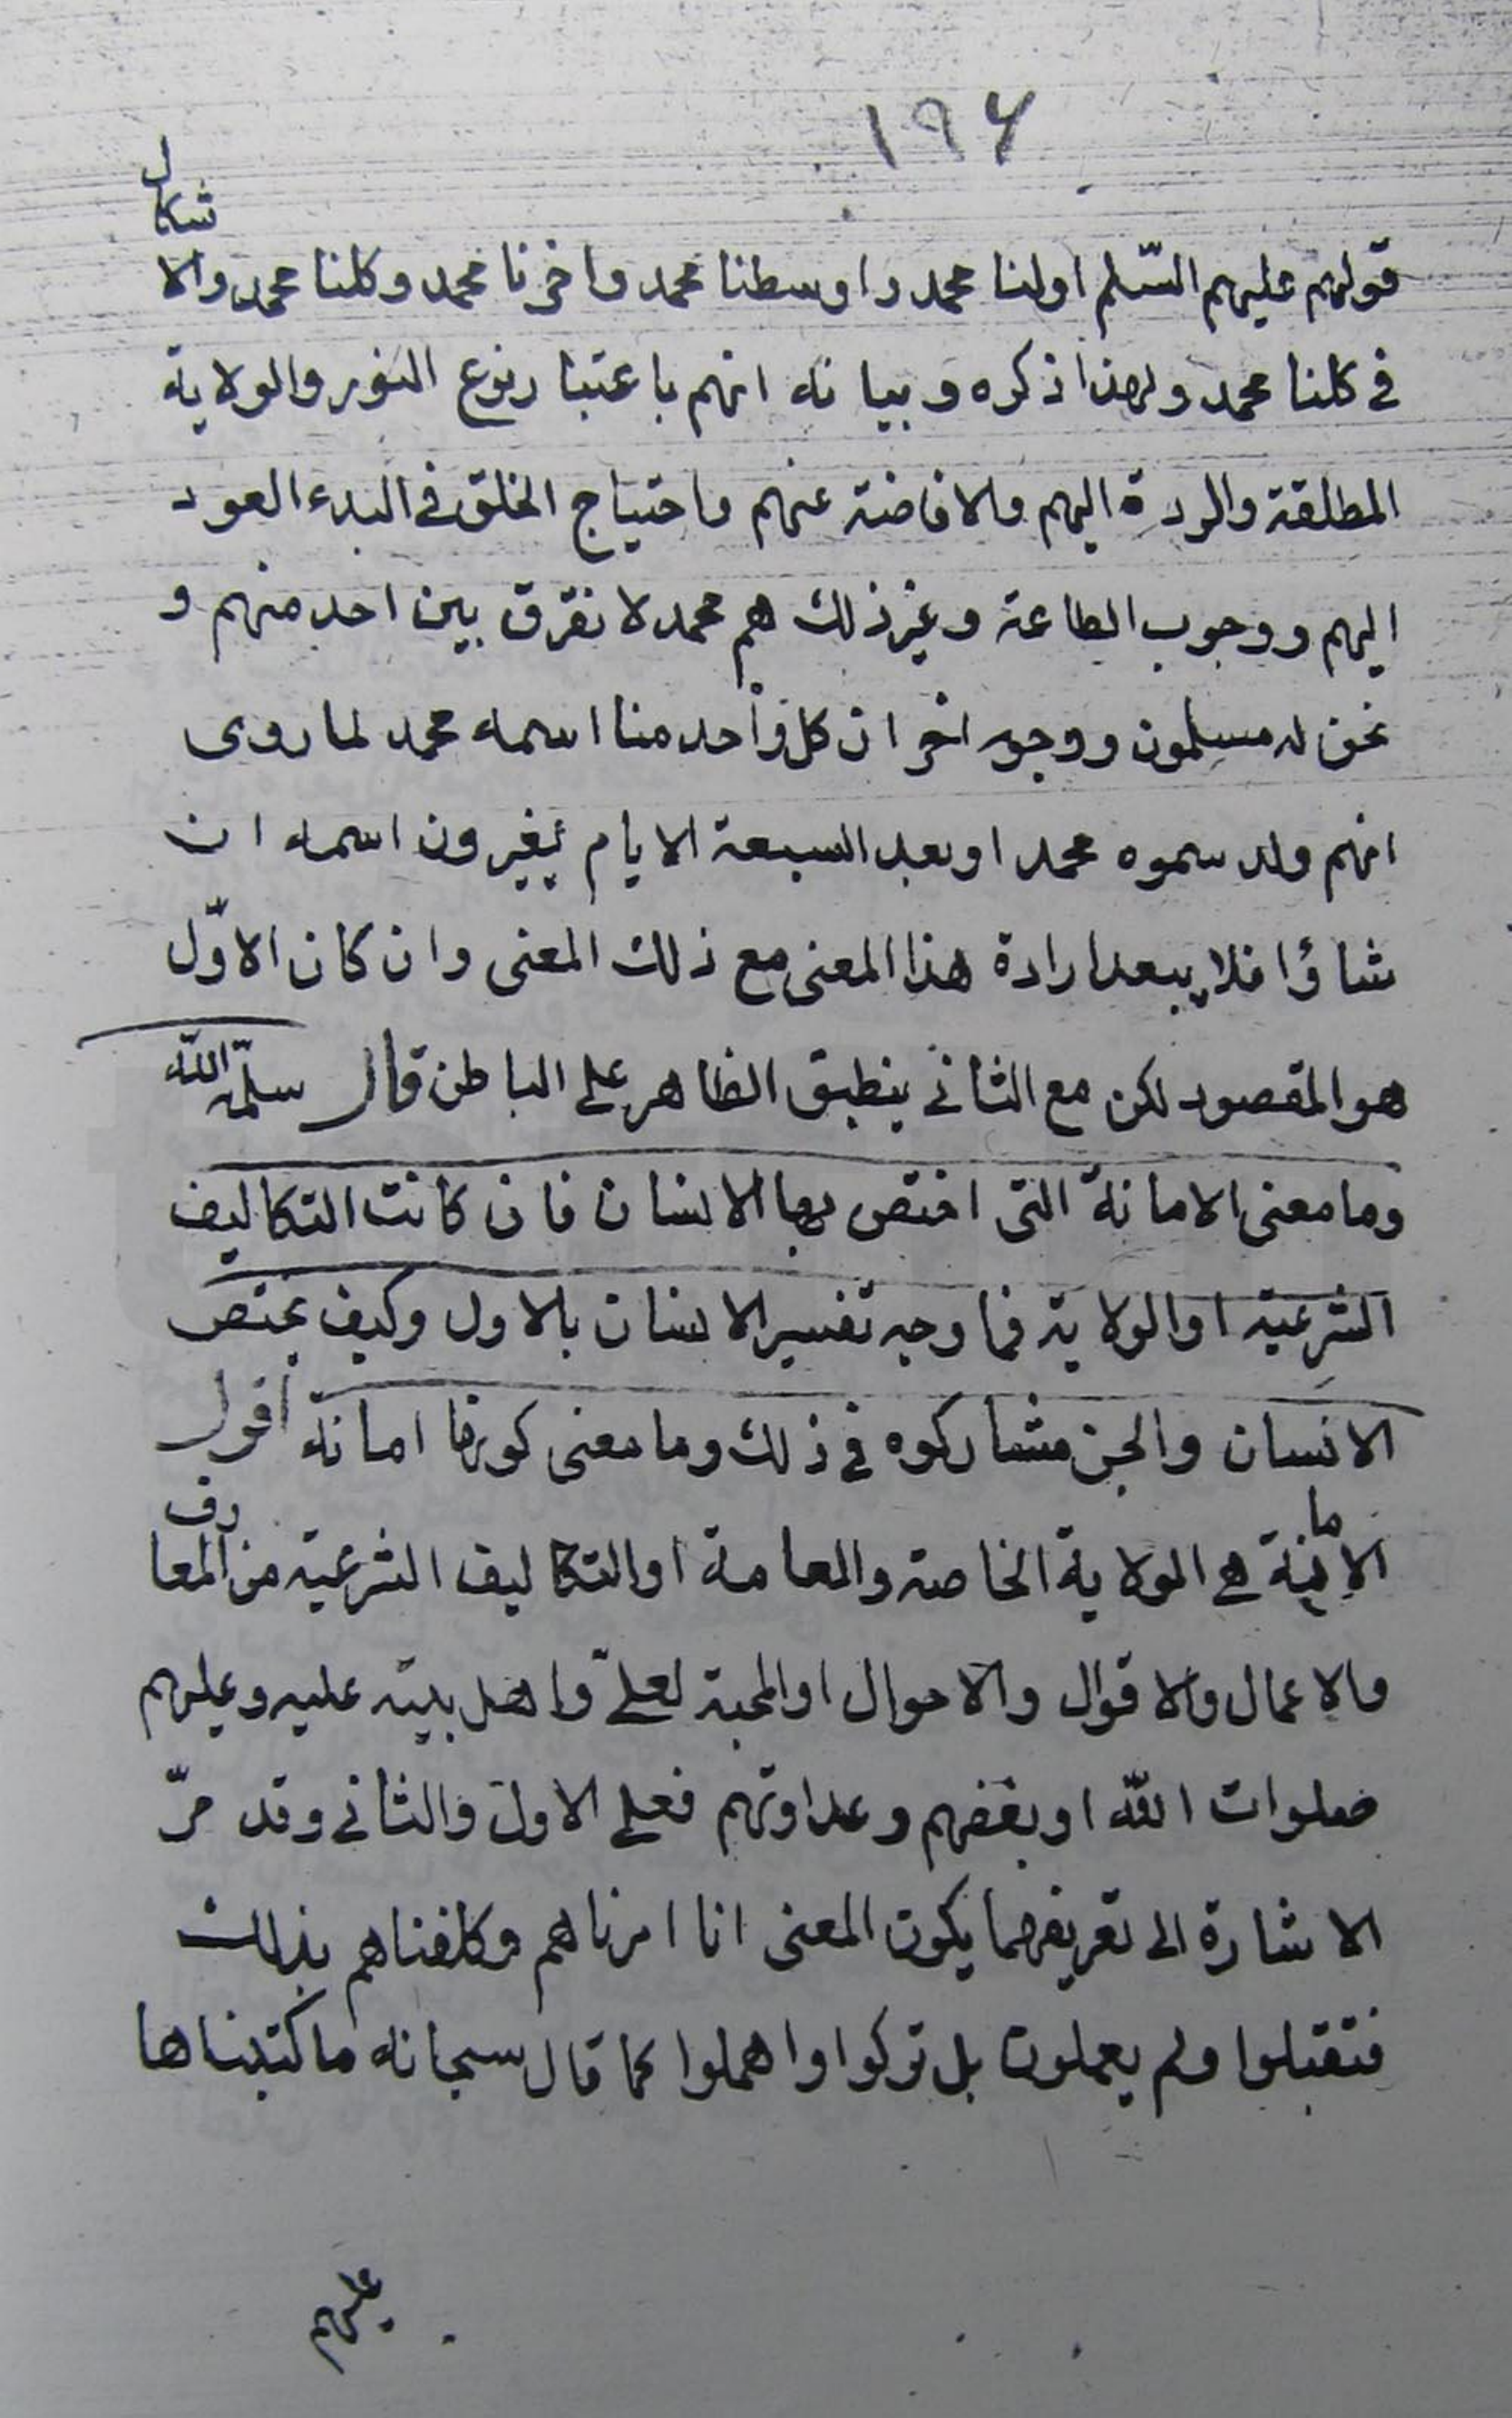 ١٩۶
قولهم عليهم السّلم اولنا محمد واوسطنا محمد واخرنا محمد وكلنا محمد والاشكال
فى كلنا محمد ولهذا ذكره وبيانه انهم باعتبار نوع النور والولاية
المطلقة والردة اليهم والافاضة عنهم واحتياج الخلق فى البدء العود
اليهم ووجوب الطاعة وغير ذلك هم محمد لا نفرق بين احد منهم و
نحن له مسلمون ووجه اخر ان كل واحد منا اسمه محمد لما روى
انهم ولد سموه محمدا وبعد السبعة الايام يغيرون اسمه ان
شاؤا فلا يبعد ارادة هذا المعنى مع ذلك المعنى وان كان الاوّل
هو المقصود لكن مع الثانى ينطبق الظاهر على الباطن قال سلّمه اللّه
وما معنى الامانة التى اختص بها الانسان فان كانت التكاليف
الشرعية او الولاية فما وجه تفسير الانسان بالاول وكيف يختص
الانسان والجن مشاركوه فى ذلك وما معنى كونها امانة اقول
الامانة هى الولاية الخاصة والعامة او التكاليف الشرعية من المعارف
والاعمال والاقوال والاحوال او المحبة لعلىّ واهل بيته عليه وعليهم
صلوات اللّه او بغضهم وعداوتهم فعلى الاول والثانى وقد مرّ
الاشارة الى تعريفهما يكون المعنى انا امرناهم وكلفناهم بذلك
فتقبلوا ولم يعملون بل تركوا واهملوا كما قال سبحانه ما كتبناها
عليهم